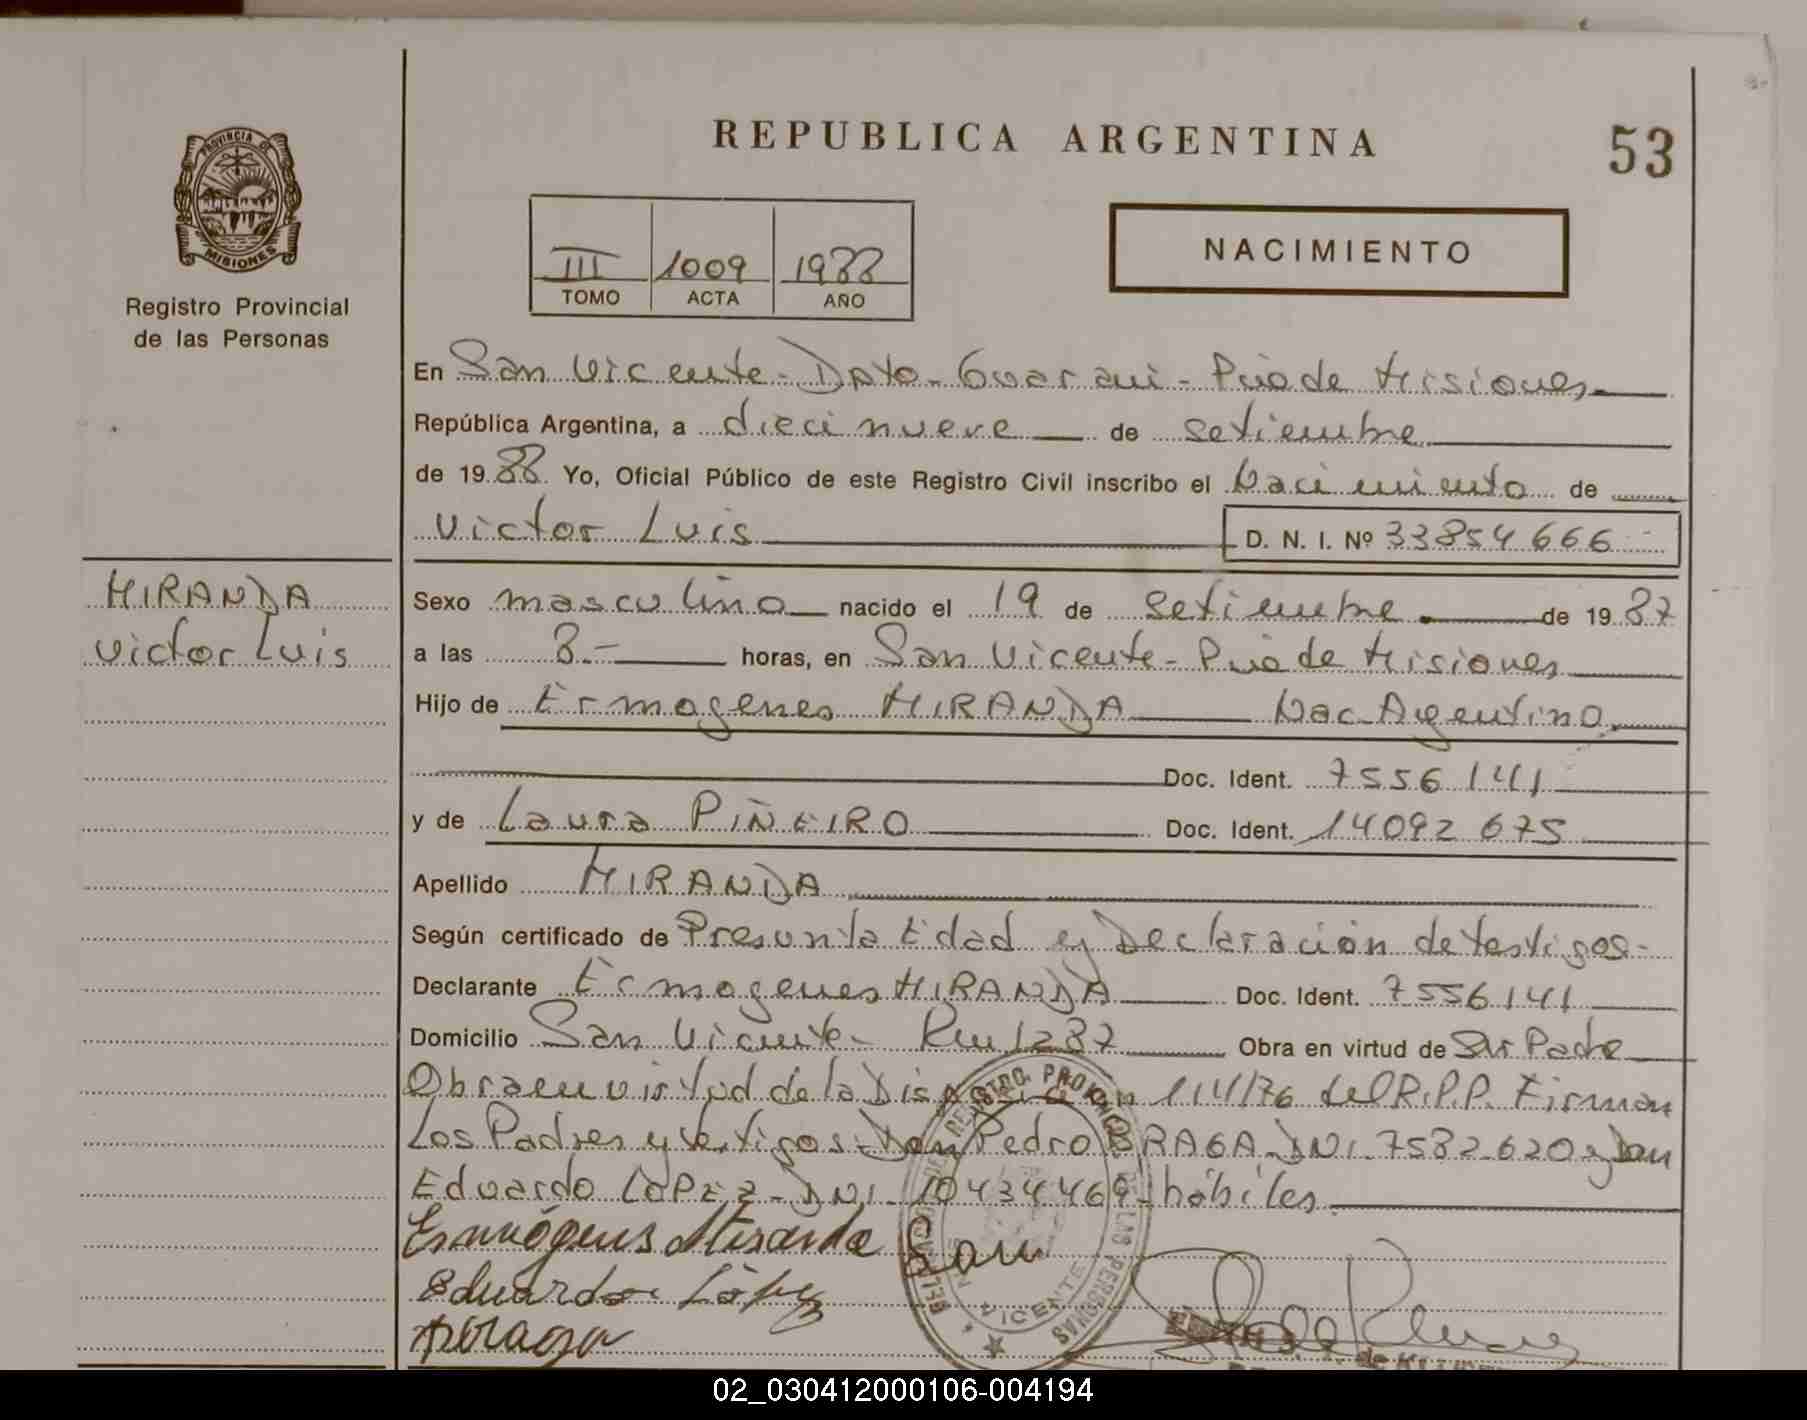 REPUBLICA ARGENTINA
53
PROVINCIA DE
MISIONES
Registro Provincial
de las Personas
III 1009 1988
TOMO ACTA AÑO
NACIMIENTO
En San Vicente - Dpto. Guarani - Pcia de Misiones
República Argentina, a diecinueve de setiembre
de 1988 Yo, Oficial Público de este Registro Civil inscribo el Nacimiento de
Victor Luis D. N. I. Nº 33854666
MIRANDA
Victor Luis
Sexo masculino nacido el 19 de setiembre de 1987
a las 8.- horas, en San Vicente - Pcia de Misiones
Hijo de Ermogenes MIRANDA Nac. Argentino
Doc. Ident. 7556141
y de Laura PIÑEIRO Doc. Ident. 14092675
Apellido MIRANDA
Según certificado de Presunta Edad y Declaración de testigos-
Declarante Ermogenes MIRANDA Doc. Ident. 7556141
Domicilio San Vicente - Km 1287 Obra en virtud de Ser Padre
Obra en virtud de la Disposicion 114/76 del R.P.P. Firman
Los Padres y testigos - Don Pedro BRAGA - DNI. 7582620 y Don
Eduardo LOPEZ - DNI. 10434469 - hábiles
Ermógenes Miranda
Eduardo López
REGISTRO PROVINCIAL DE LAS PERSONAS
VICENTE
02_030412000106-004194